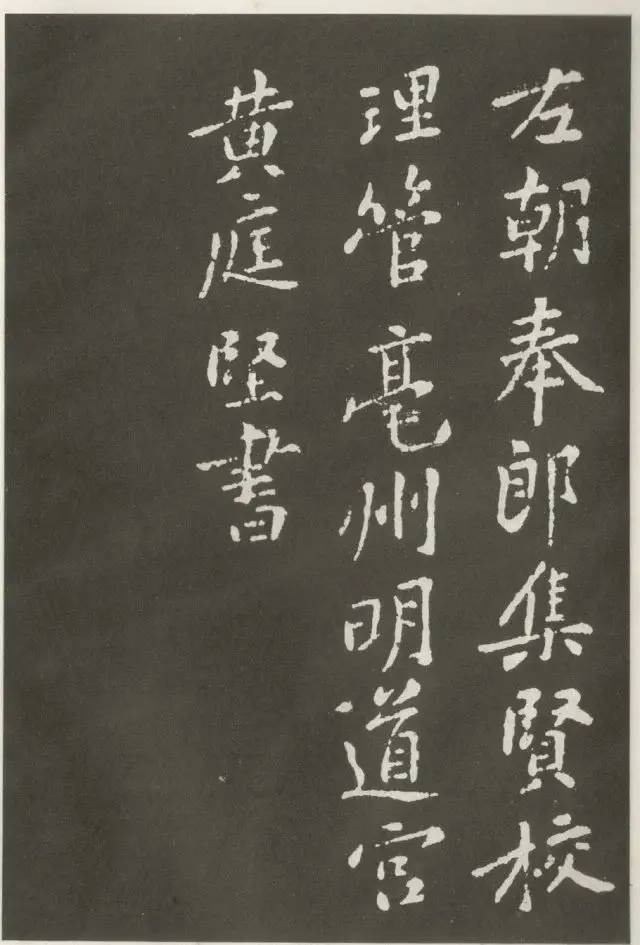 左朝奉郎集賢校
理管亳州明道宫
黄庭堅書